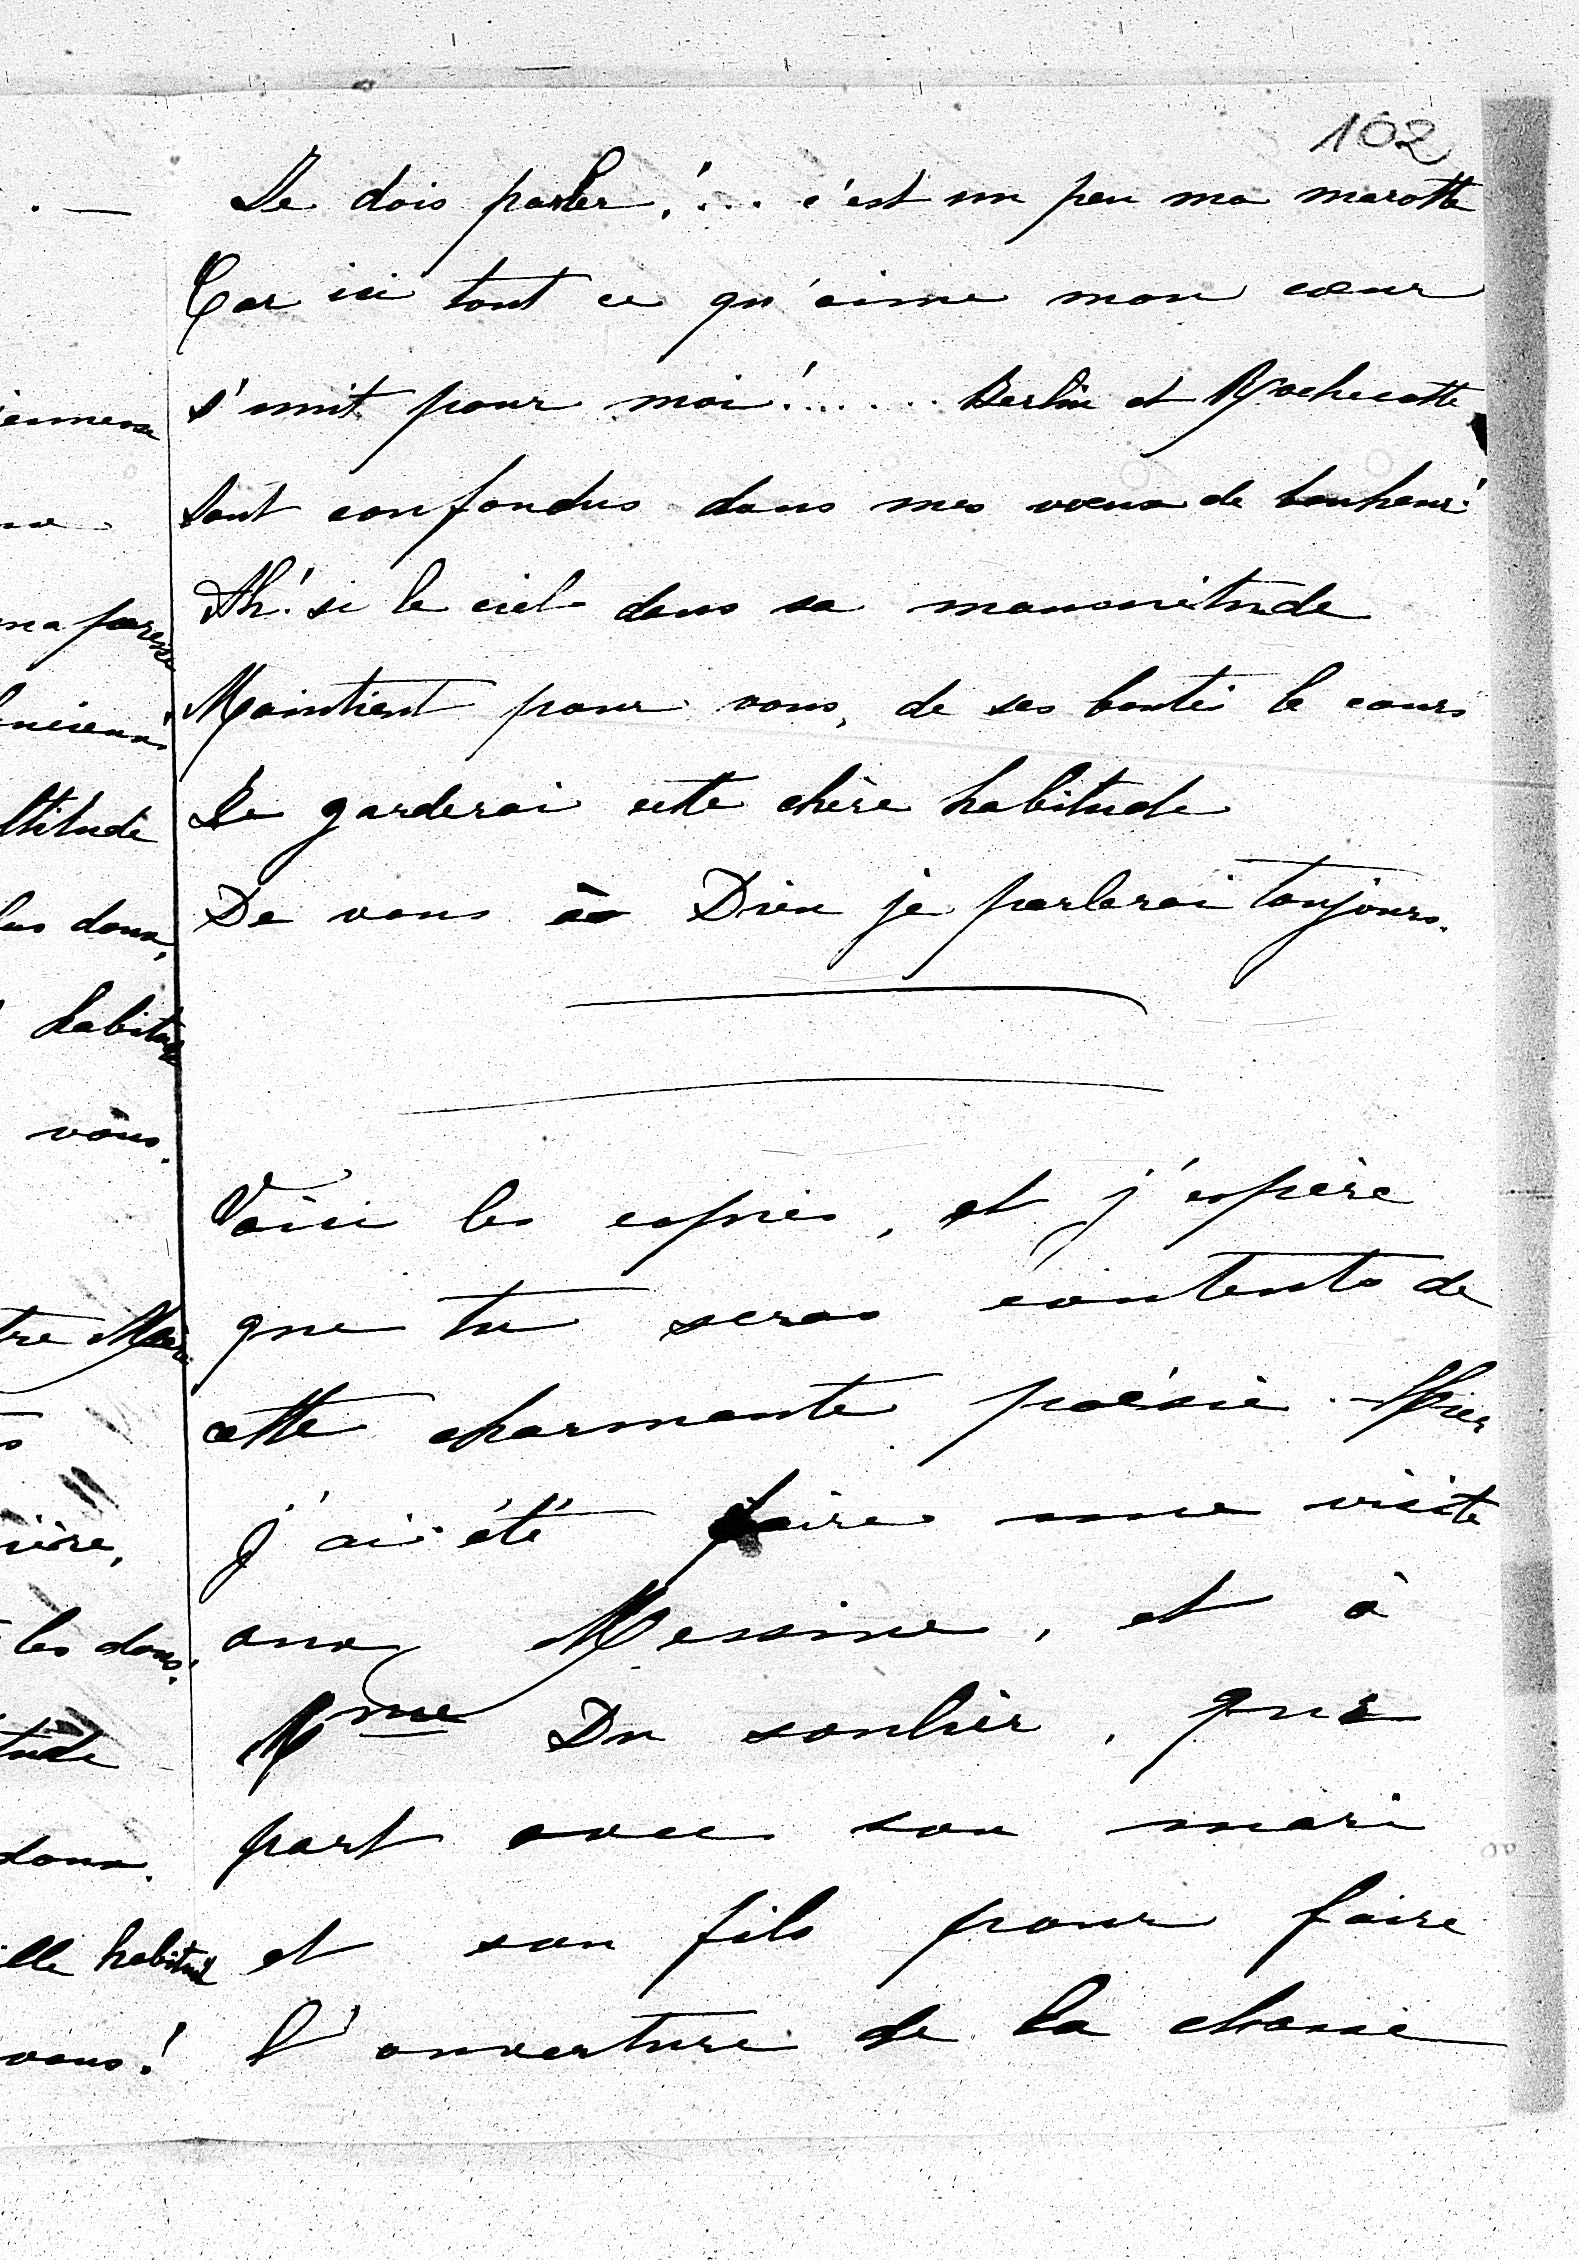 102
Je dois parler!... c'est un peu ma marotte
Car ici tout ce qu'aime mon cœur
s'unit pour moi!...... Berlin et Rochecotte
Sont confondus dans mes vœux de bonheur!
Ah! si le ciel dans sa
Maintient pour vous, de ses bontés le cours
Je garderai cette chère habitude
De vous à Dieu je parlerai toujours.
Voici les copies, et j'espère
que tu seras contente de
cette charmante poésie. Hier
j'ai été faire une visite
aux Messine, et à
Mme Du soulier, qui
part avec son mari
et son fils pour faire
l'ouverture de la chasse
ltitude
habitude
vous.
les dons!
tude
doux.
elle habitude
vous!